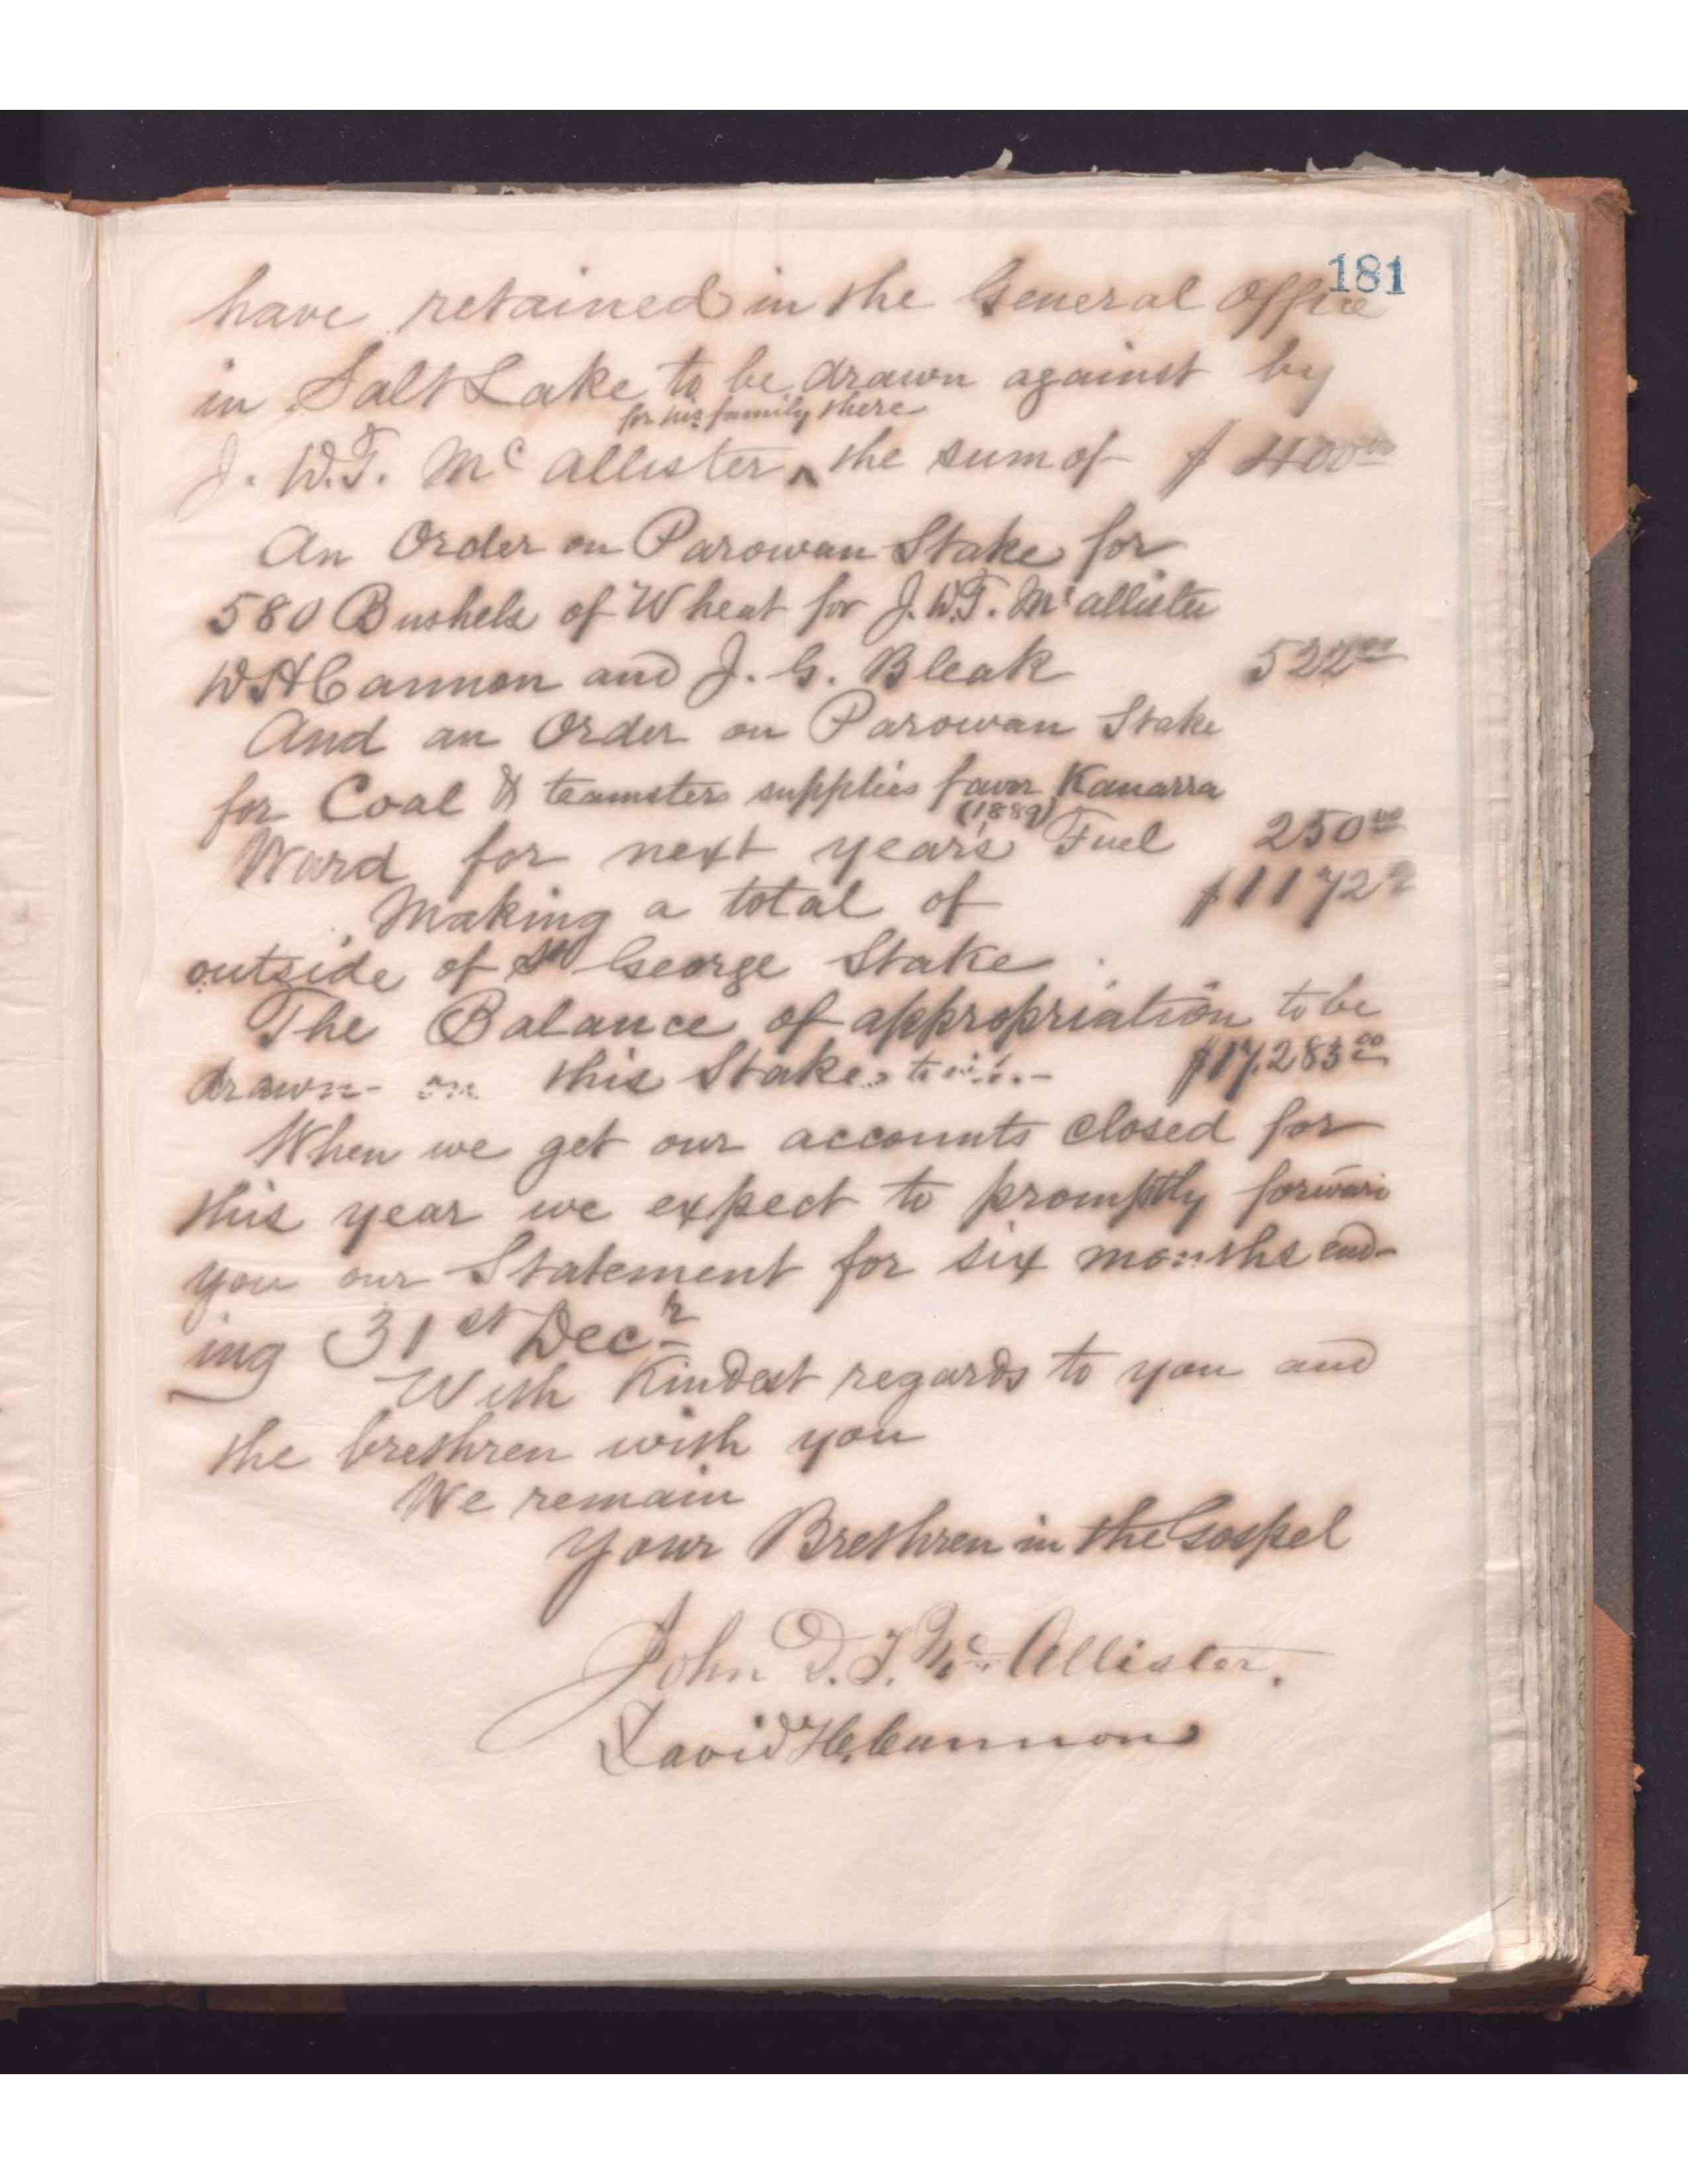 181
have retained in the General Office
in Salt Lake to be drawn against by
for his family there
J. W.T. Mc Allister ^ the sum of $ 400 00
An Order on Parowan Stake for
580 Bushels of Wheat for J. W.T. McAllister
W H Cannon and J. G. Bleak 522 00
And an Order on Parowan Stake
for Coal & teamsters supplies favor Kanarra
(1889)
Ward for next year's Fuel 250 00
Making a total of $1172 00
outside of St George Stake.
The Balance of appropriation to be
drawn on this Stake $17,283 00
When we get our accounts closed for
this year we expect to promptly forward
you our Statement for six months end-
ing 31st Decr
With Kindest regards to you and
the brethren with you
We remain
Your Brethren in the Gospel
John D. T. Mc Allister.
David H. Cannon